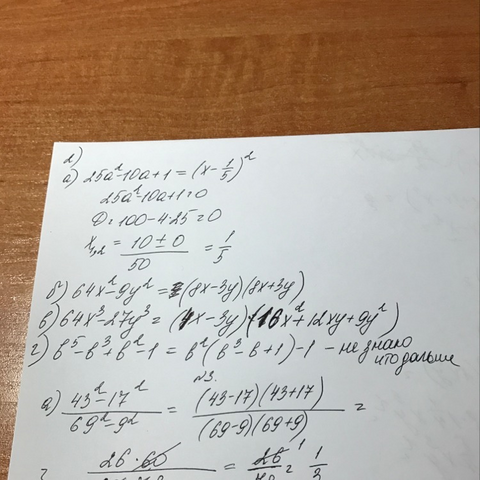 2)
а) 25a²-10a+1 = (x-1/5)²
25a²-10a+1=0
D=100-4·25=0
x₁,₂ = (10±0)/50 = 1/5
б) 64x²-9y² = (8x-3y)(8x+3y)
в) 64x³-27y³ = (4x-3y)(16x²+12xy+9y²)
г) b⁵-b³+b²-1 = b²(b³-b+1)-1 - не знаю
что дальше
№3.
а) (43²-17²)/(69²-9²) = ((43-17)(43+17))/((69-9)(69+9)) =
26·60 = 26 = 1/3